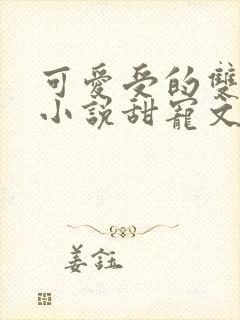 可愛受的雙
小說甜寵文
姜鈺